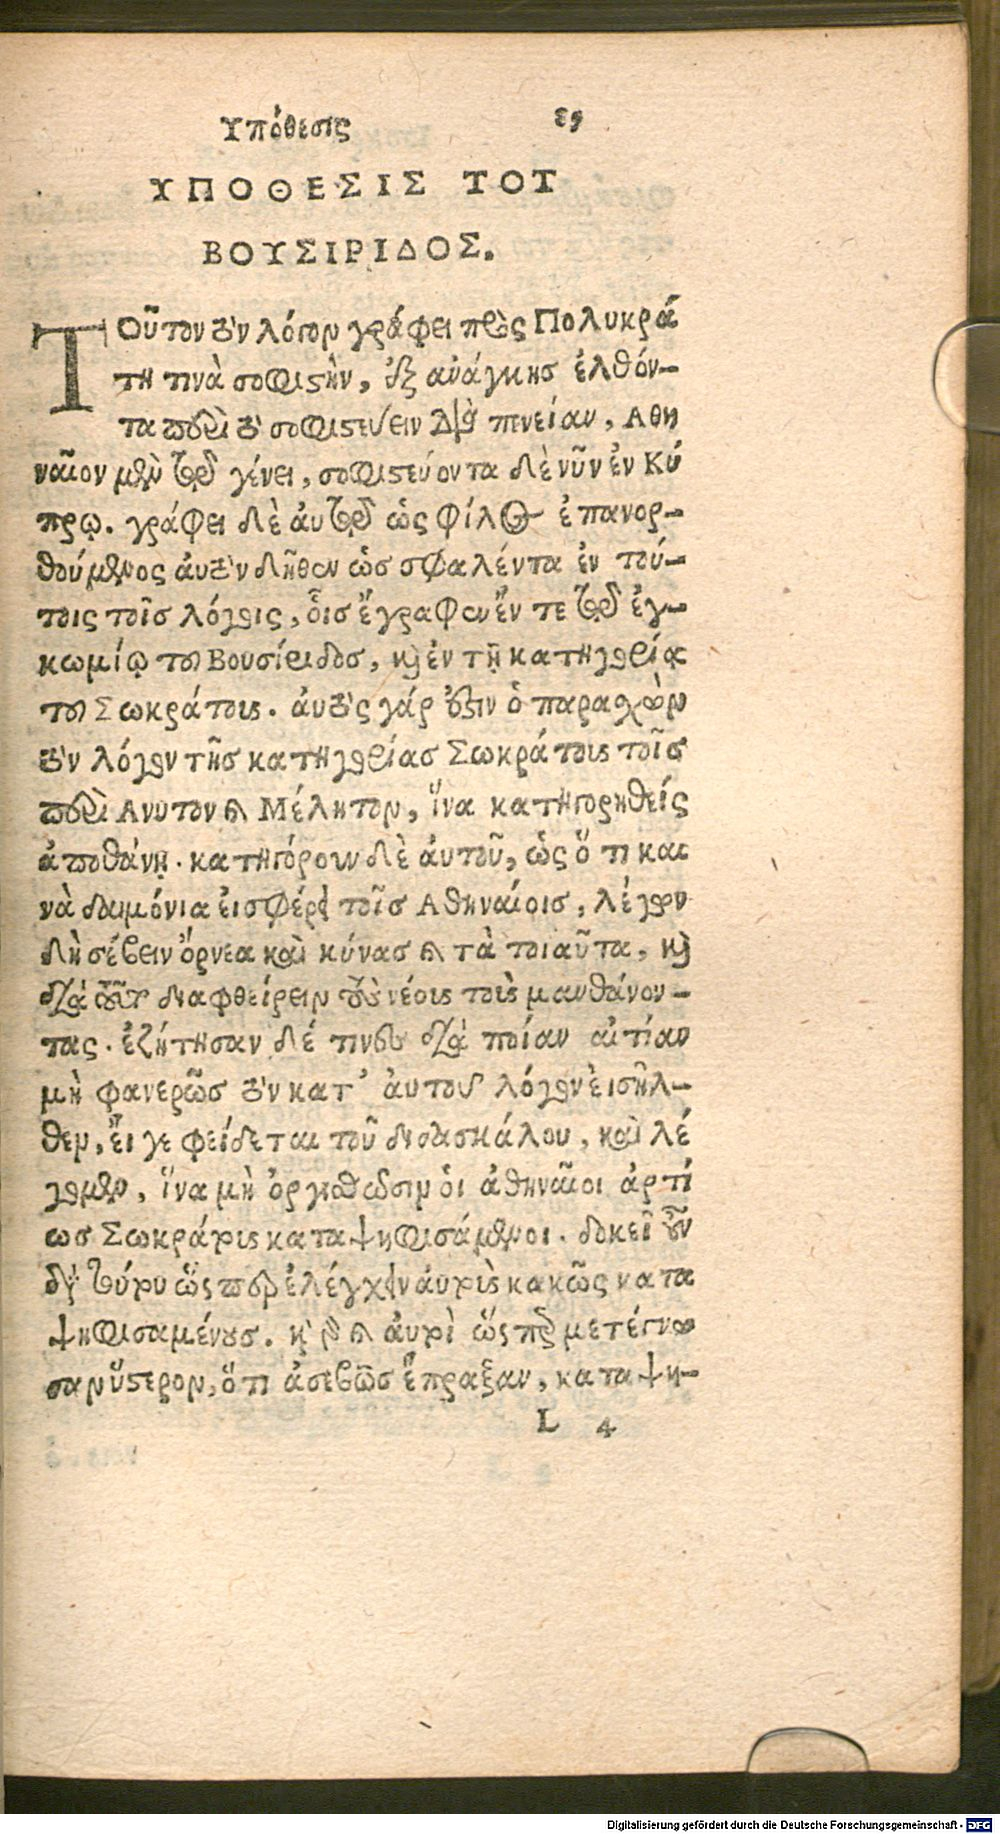 Υπόθεσις ε,
ΥΠΟΘΕΣΙΣ ΤΟΥ
ΒΟΥΣΙΡΙΔΟΣ.
ΤΟῦτον τὸν λόγον γράφει πρὸς Πολυκρά
τη τινὰ σοφιστὴν, ἐξ ἀνάγκης ἐλθόν-
τα ἐπὶ τὸ σοφιστεύειν διὰ πενείαν, Αθη
ναῖον μὲν τῷ γένει, σοφιστεύοντα δὲ νῦν ἐν Κύ
πρῳ. γράφει δὲ ἀυτῷ ὡς φίλος ἐπανορ-
θούμενος ἀυτὸν δῆθεν ὡς σφαλέντα ἐν τού-
τοις τοῖς λόγοις, οἷς ἔγραφεν ἔν τε τῷ ἐγ-
κωμίῳ του Βουσίριδος, καὶ ἐν τῇ κατηγορίᾳ
του Σωκράτους. ἀυτὸς γάρ ἐστιν ὁ παρασχὼν
τὸν λόγον τῆς κατηγορίας Σωκράτους τοῖς
περὶ Ανυτον καὶ Μέλητον, ἵνα κατηγορηθείς
ἀποθάνῃ. κατηγόρουν δὲ ἀυτοῦ, ὡς ὅ τι και
νὰ δαιμόνια ἐισφέρει τοῖς Αθηναίοις, λέγων
δὴ σέβειν ὄρνεα καὶ κύνας καὶ τὰ τοιαῦτα, καὶ
διὰ τοῦτο διαφθείρειν τοὺς νέους τοὺς μανθάνον-
τας. ἐζήτησαν δέ τινες διὰ ποίαν αἰτίαν
μὴ φανερῶς τὸν κατ' ἀυτου λόγον ἐισῆλ-
θεν, ἔι γε φείδεται τοῦ διδασκάλου, καὶ λέ
γομεν, ἵνα μὴ ὀργισθῶσιν ὁι ἀθηναῖοι ἀρτί
ως Σωκράτους καταψηφισάμενοι. δοκεῖ οὖν
διὰ τούτου ὥσπερ ἐλέγχειν ἀυτοὺς κακῶς κατα
ψηφισαμένους. καὶ γὰρ καὶ ἀυτοὶ ὥς περ μετέγνω
σαν ὕστερον, ὅτι ἀσεβῶς ἔπραξαν, καταψη-
L 4
Digitalisierung gefördert durch die Deutsche Forschungsgemeinschaft - DFG